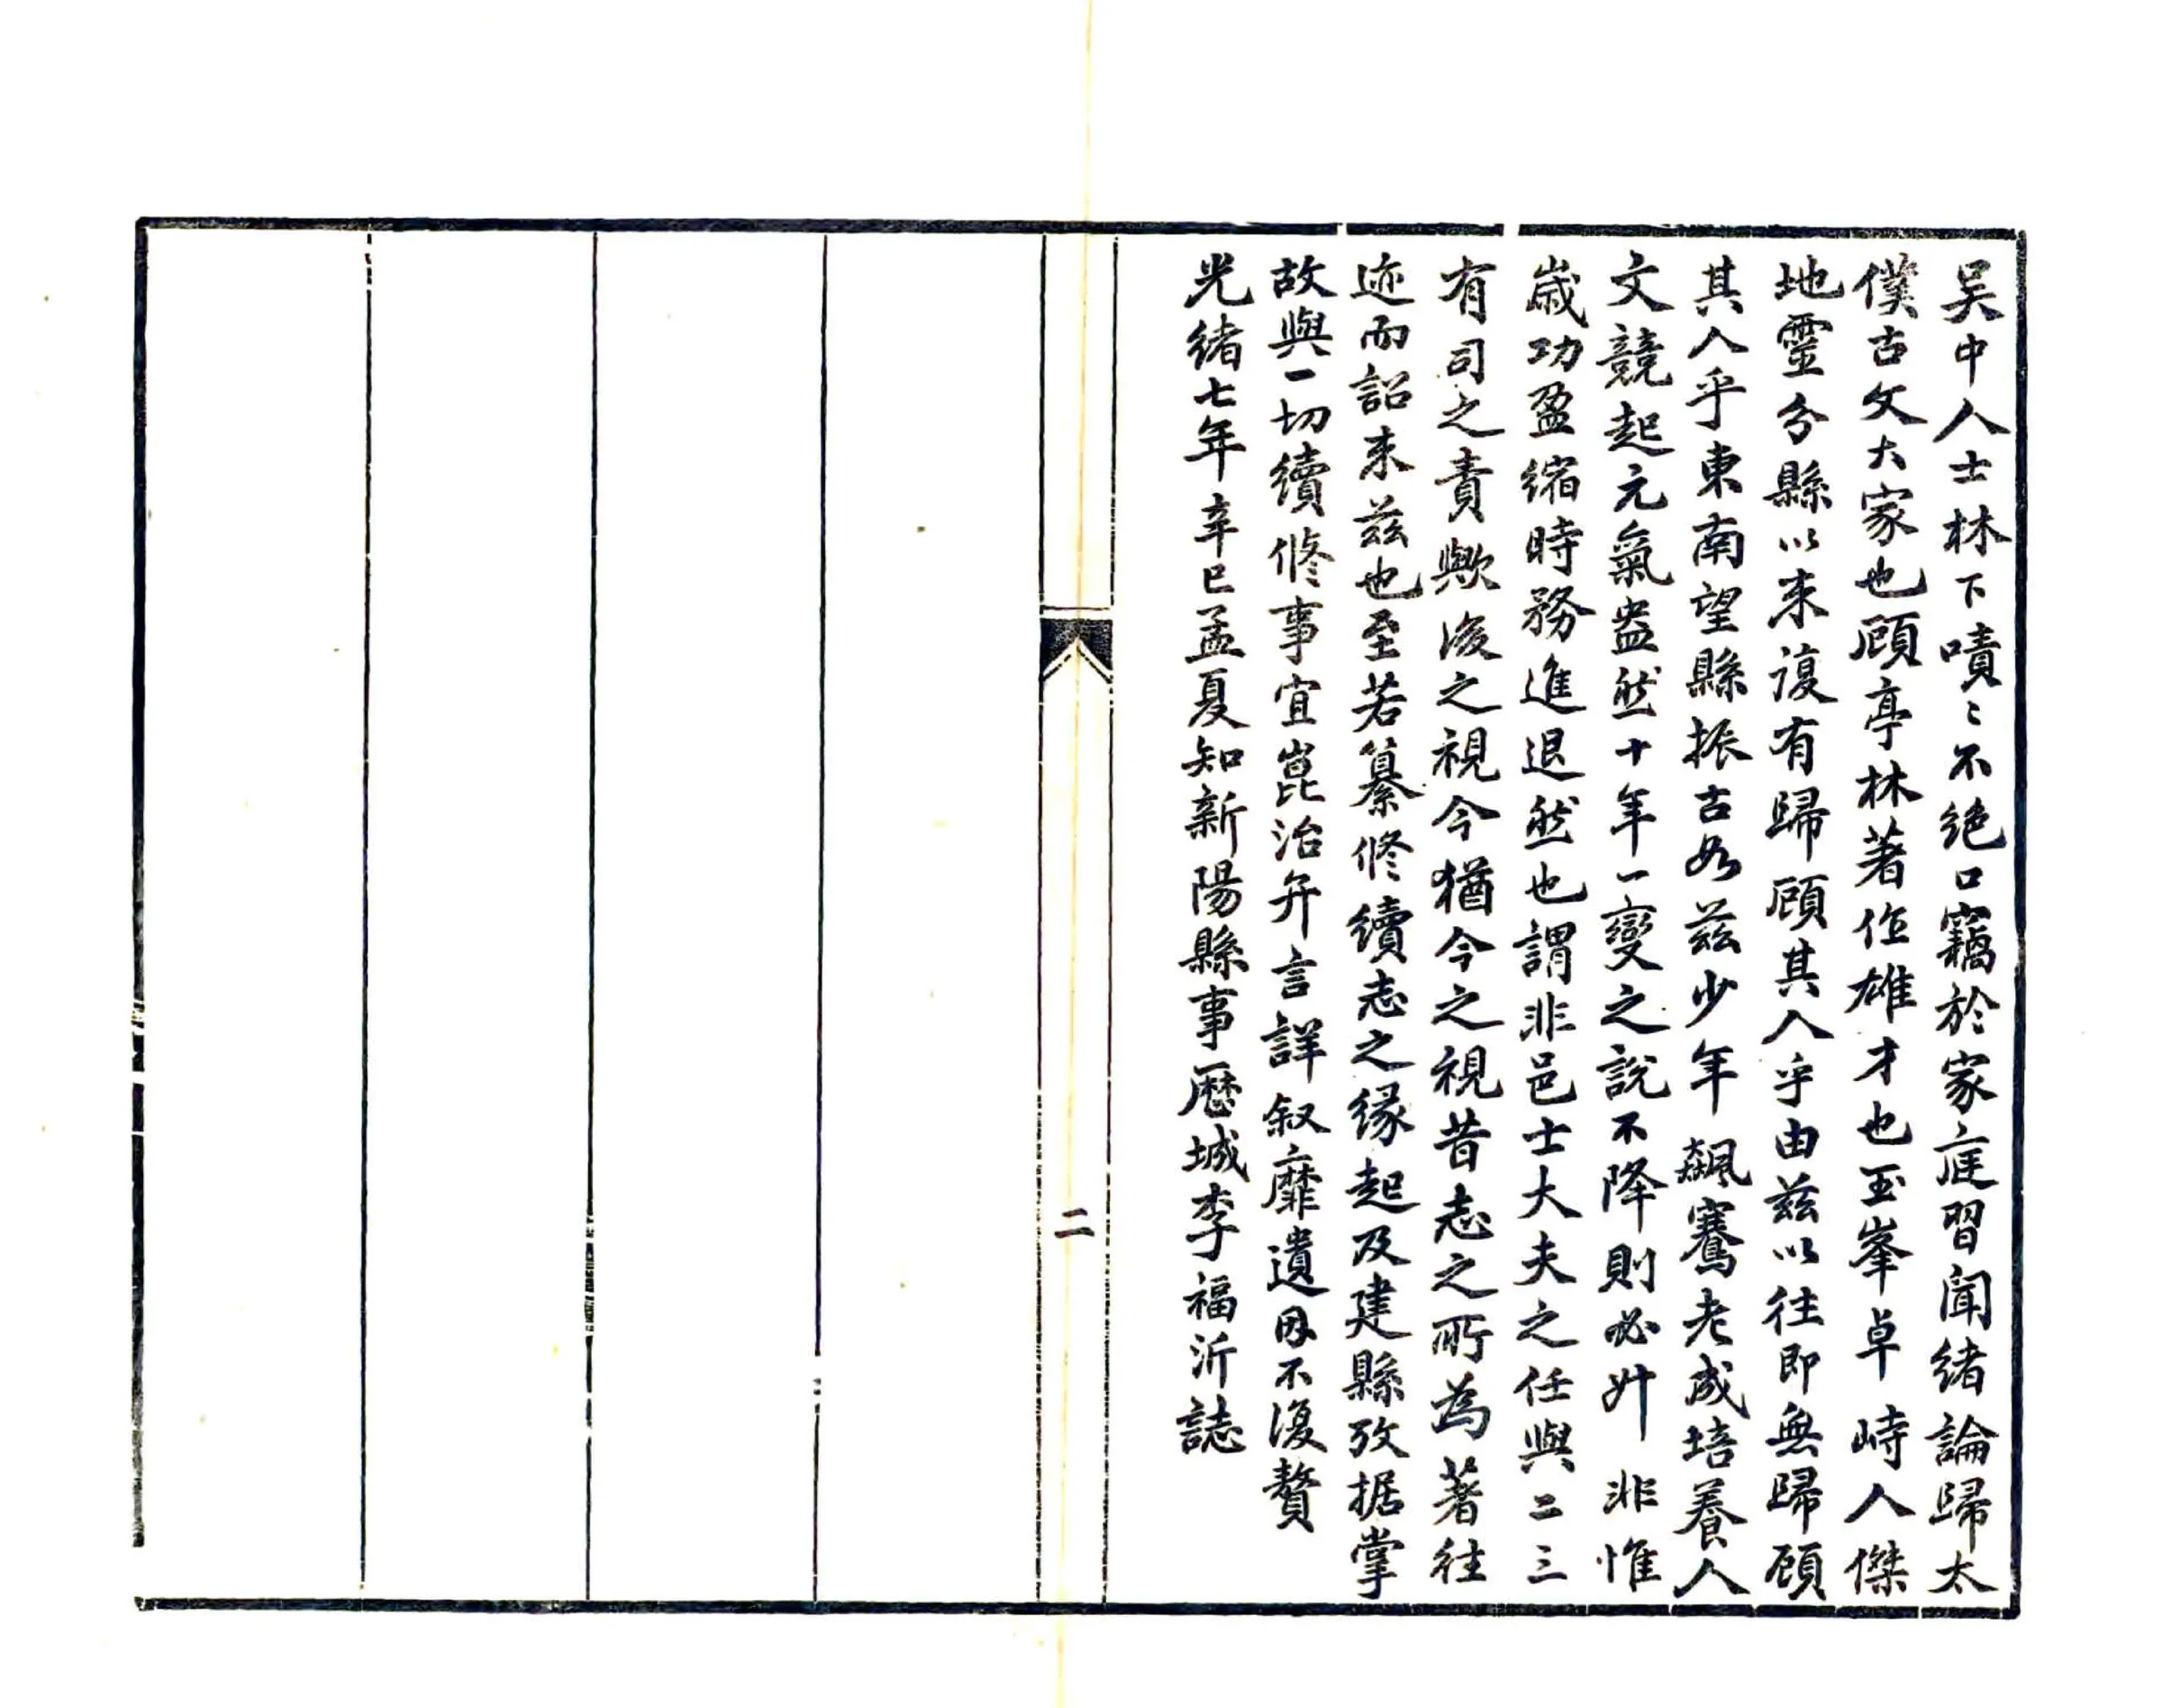 吴中人士林下嘖〻不絕口竊於家庭習聞緒論歸太
僕古文大家也顧亭林著作雄才也玉峯卓峙人傑
地靈分縣以来復有歸顧其人乎由兹以往即無歸顧
其人乎東南望縣振古如兹少年飆騫老成培養人
文競起元氣盎然十年一變之說不降則必升非惟
歲功盈縮時務進退然也謂非邑士大夫之任與二三
有司之責歟後之視今猶今之視昔志之所為著往
迹而詔来兹也至若纂修續志之緣起及建縣攷据掌
故與一切續修事宜崑治弁言詳叙靡遺因不復贅
光緒七年辛巳孟夏知新陽縣事歷城李福沂誌
二